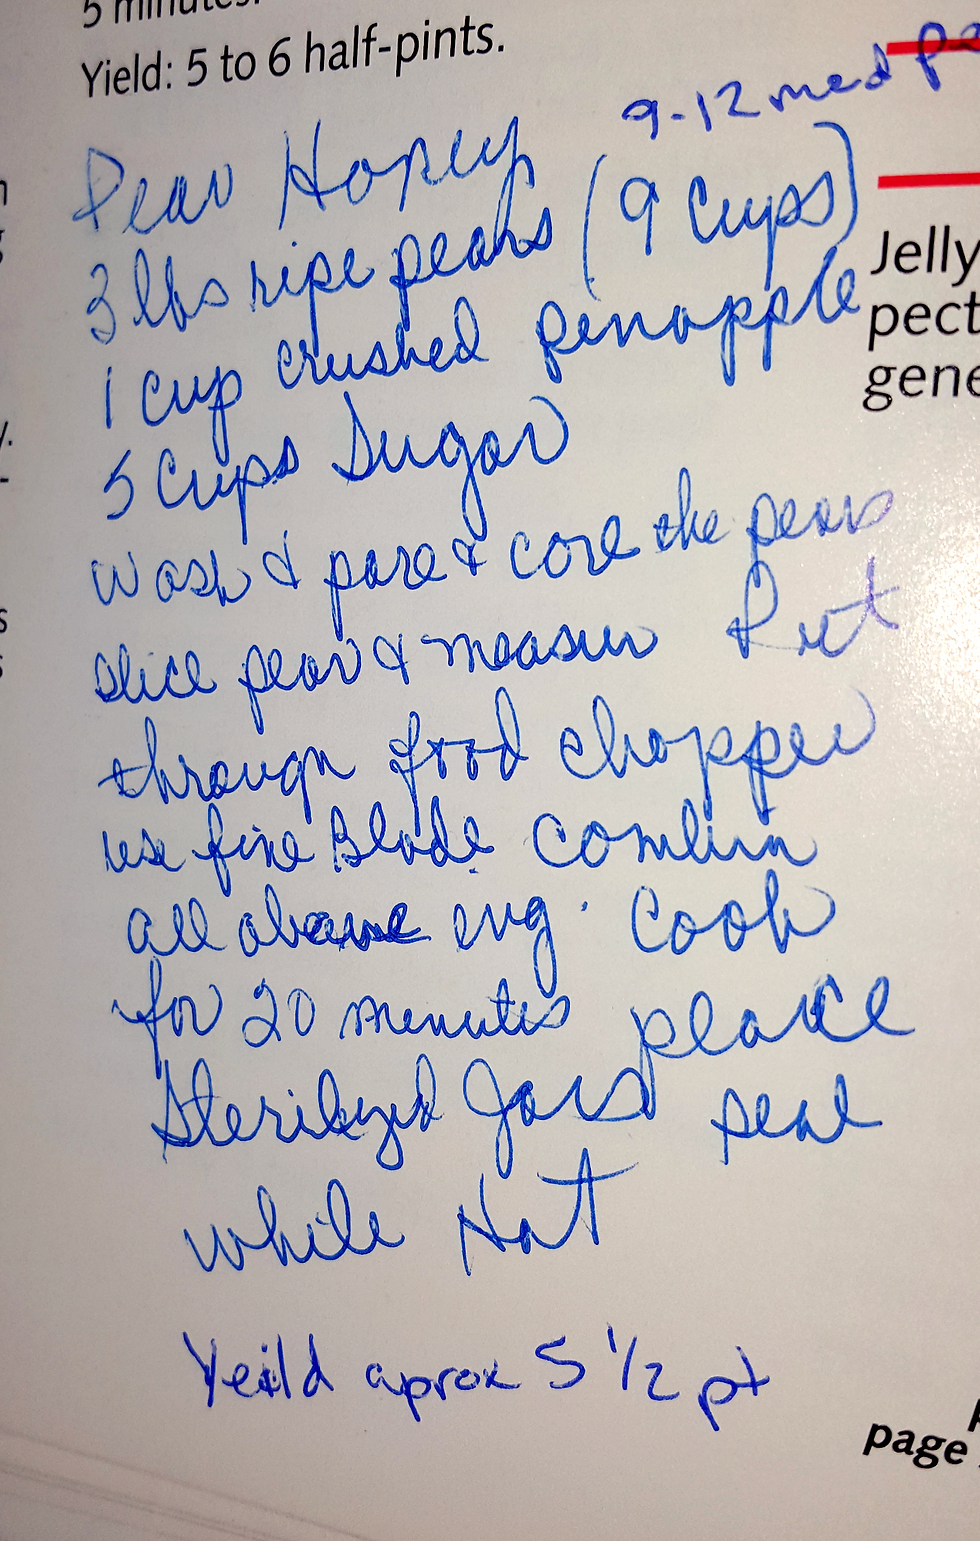 5 minutes.
Yield: 5 to 6 half-pints.
9-12 med
Pear Honey
3 lbs ripe pears (9 Cups)
1 cup crushed pinapple
5 Cups Sugar
wash & pare & core the pears
slice pear & measur Put
through food chopper
use fine Blade. Combin
all above eng. Cook
for 20 minutes place
Sterilized Jars seal
while Hot
Yeild aprox 5 1/2 pt
Jelly
pect
gene
page